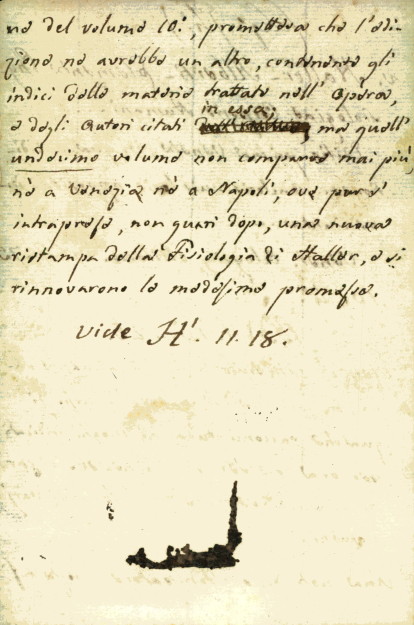 ne del volume 10.°, prometteva che l'edi-
zione ne avrebbe un altro, contenente gli
indici delle materie trattate nell'Opera,
in essa;
e degli Autori citati ma quell'
undecimo volume non comparve mai più,
nè a Venezia nè a Napoli, ove pur s'
intraprese, non guari dopo, una nuova
ristampa della Fisiologia di Haller, e si
rinnovarono le medesime promesse.
Vide H'. 11. 18.